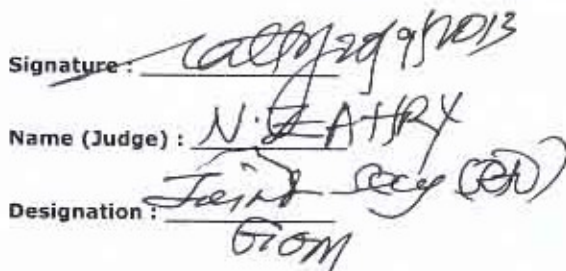 Signature : 29/9/2013
Name (Judge) : N. ZATHRY
Designation : Joint Secy (RD)
GOM